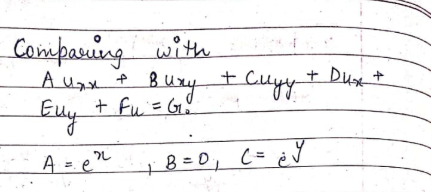 Comparing with
A uxx + B uxy + Cuyy + Dux +
Euy + Fu = G.
A = e^x , B = 0, C = e^y